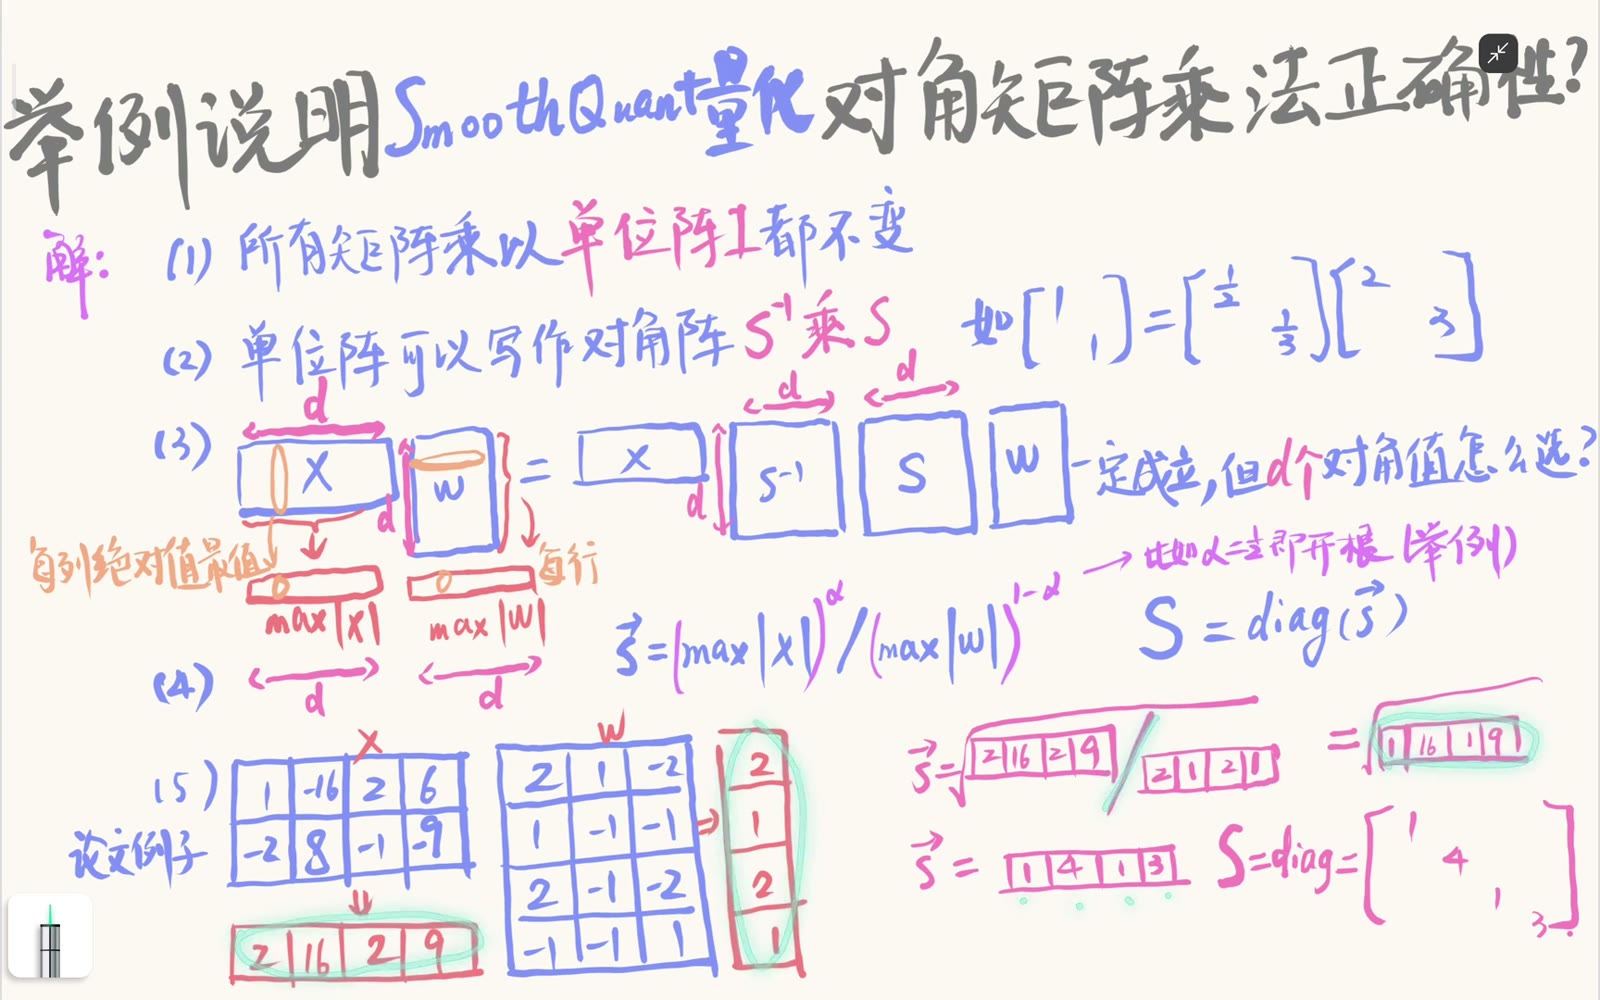 举例说明SmoothQuant量化对角矩阵乘法正确性?
解: (1) 所有矩阵乘以单位阵I都不变
(2) 单位阵可以写作对角阵 S⁻¹乘S 如[1 1]=[1/2 1/3][2 3]
d d d
(3) X d W = X d S⁻¹ S W 一定成立,但d个对角值怎么选?
每列绝对值最值 每行
→ 比如α=½即开根(举例)
max|X| max|W|
(4) d d s⃗=(max|X|)^α/(max|W|)^1-α S=diag(s⃗)
X W
(5) 论文例子
1 -16 2 6
-2 8 -1 -9
⇓
2 16 2 9
2 1 -2
1 -1 -1
2 -1 -2
-1 -1 1
⇒
2
1
2
1
s⃗=√ 2 16 2 9 / 2 1 2 1 = √ 1 16 1 9
s⃗= 1 4 1 3 S=diag=[1 4 1 3]